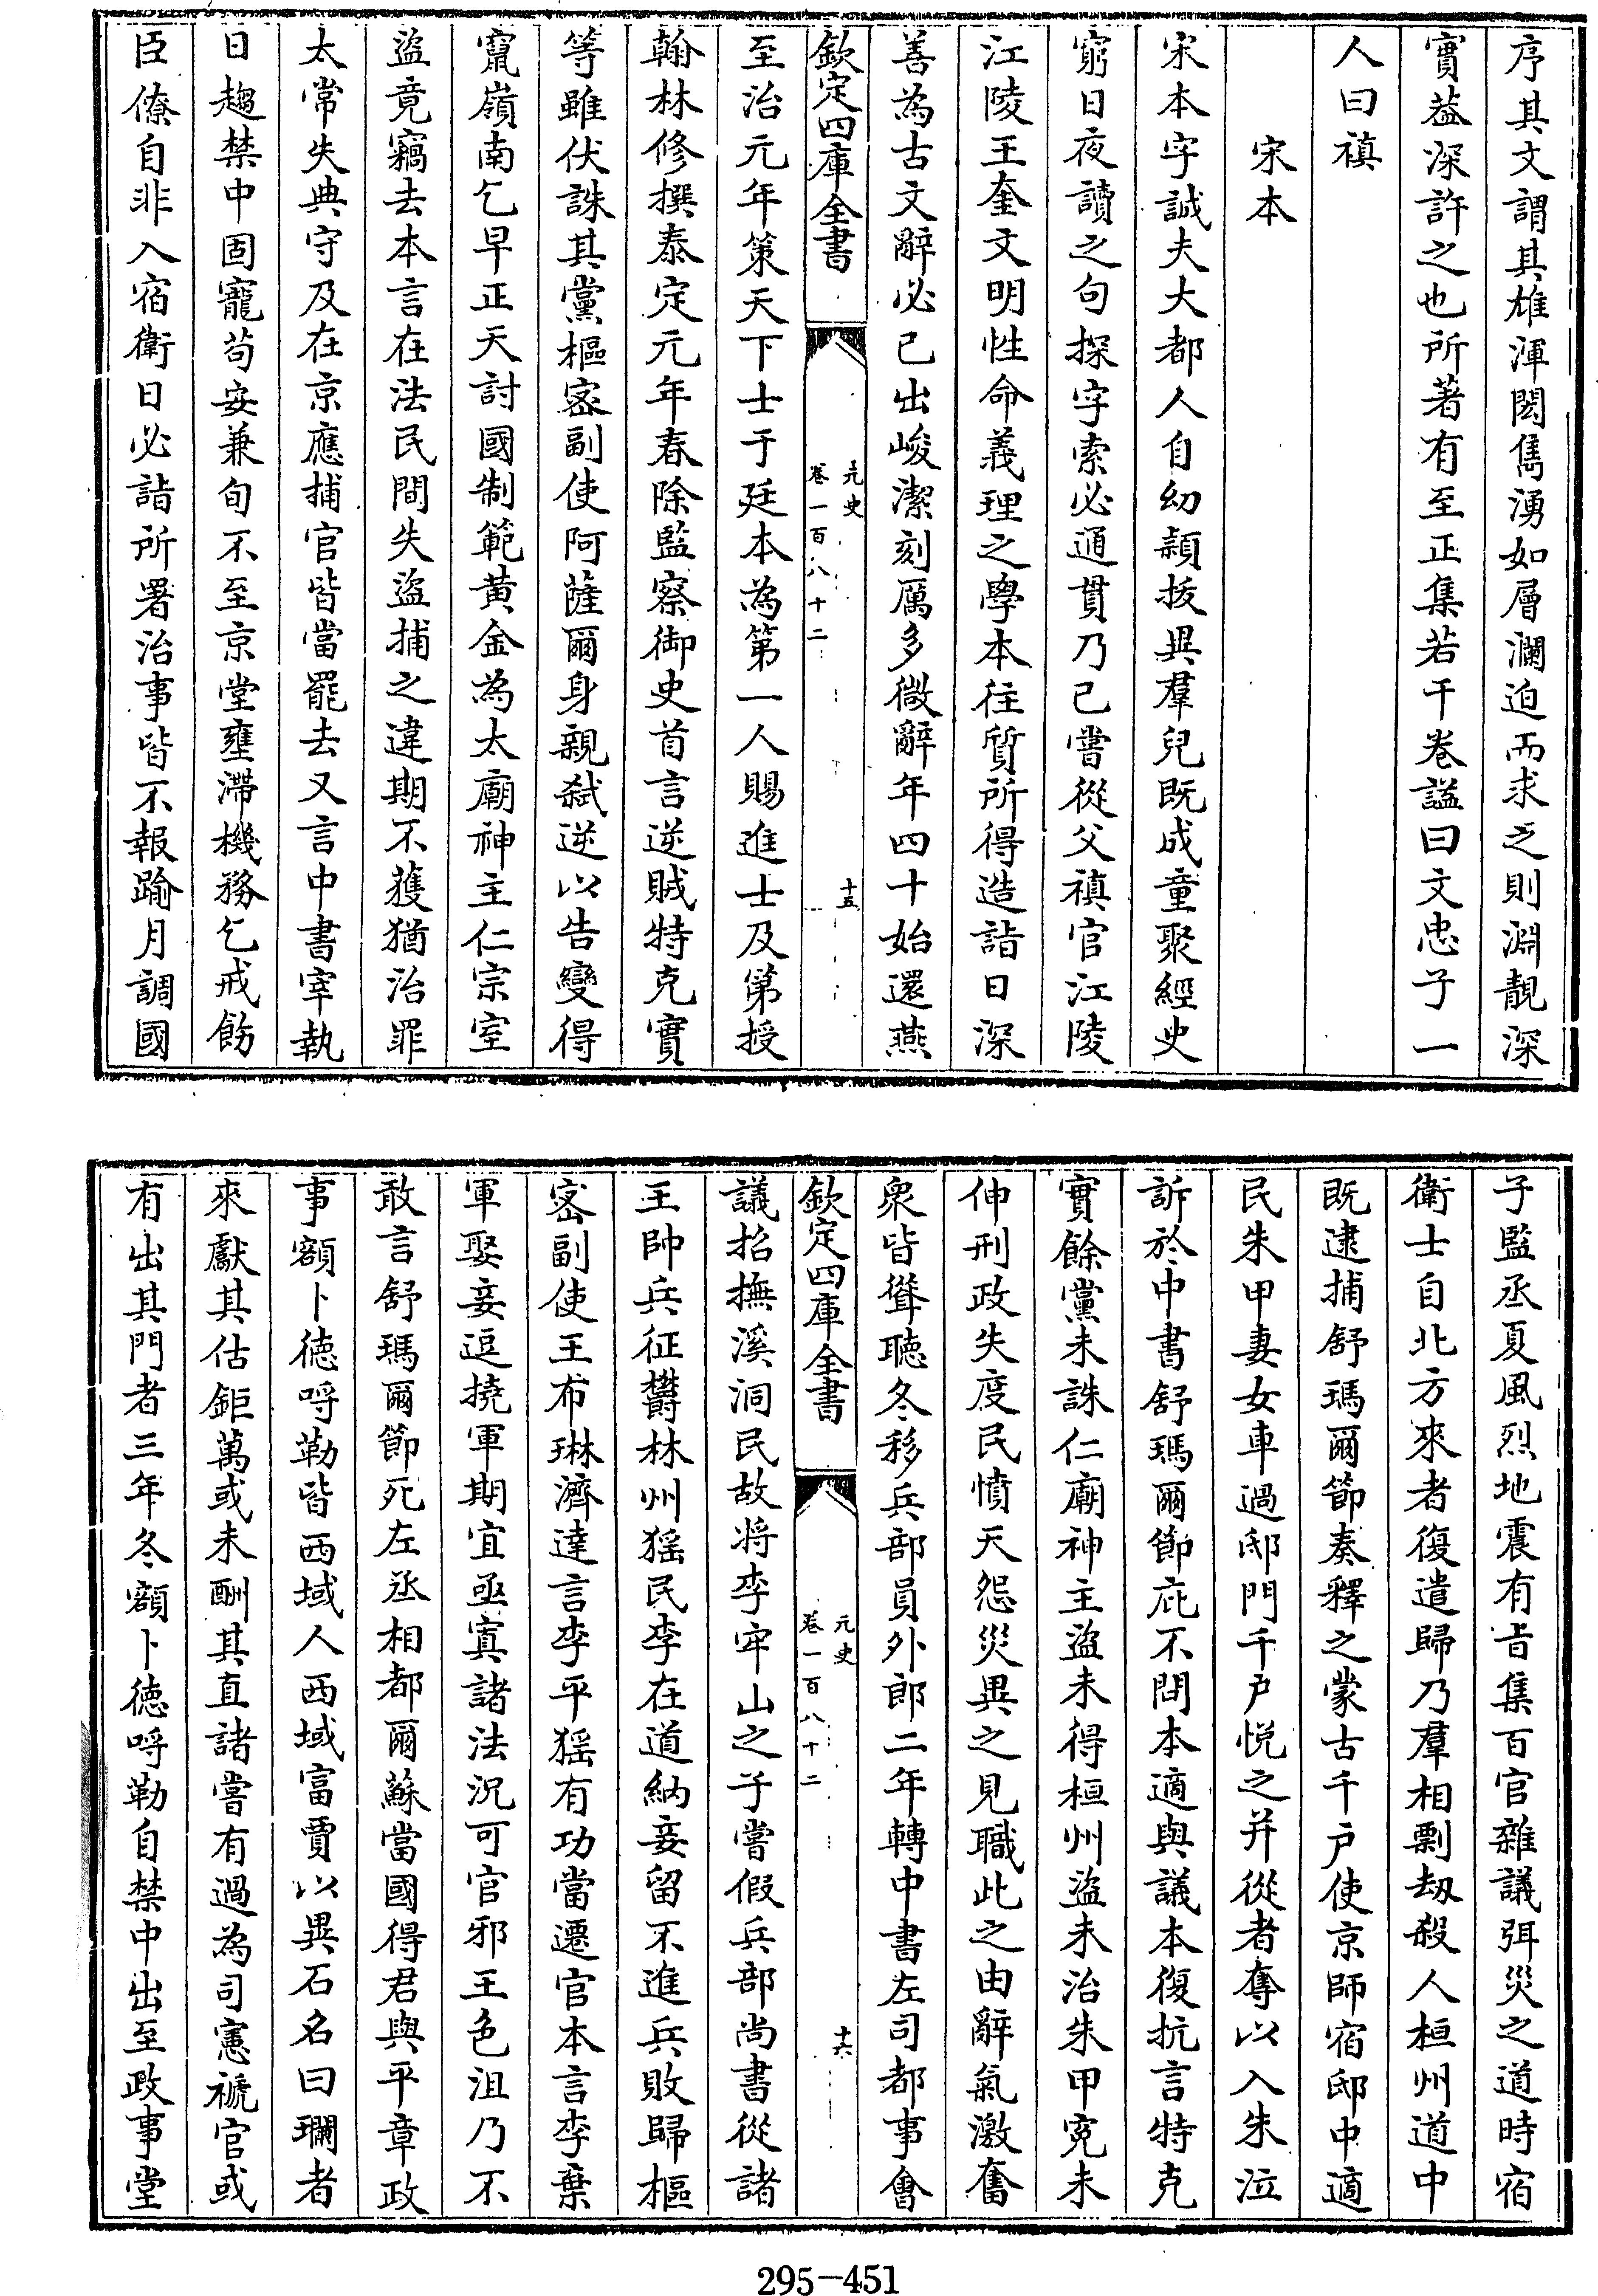 序其文謂其雄渾閎雋湧如層瀾迫而求之則淵靚深
實葢深許之也所著有至正集若干卷謚曰文忠子一
人曰禛
宋本
宋本字誠夫大都人自幼穎拔異羣兒既成童聚經史
窮日夜讀之句探字索必通貫乃已嘗從父禛官江陵
江陵王奎文明性命義理之學本往質所得造詣日深
善為古文辭必已出峻潔刻厲多微辭年四十始還燕
欽定四庫全書
元史
卷一百八十二
十五
至治元年策天下士于廷本為第一人賜進士及第授
翰林修撰泰定元年春除監察御史首言逆賊特克實
等雖伏誅其黨樞密副使阿薩爾身親弑逆以告變得
竄嶺南乞早正天討國制範黄金為太廟神主仁宗室
盜竟竊去本言在法民間失盜捕之違期不獲猶治罪
太常失典守及在京應捕官皆當罷去又言中書宰執
日趨禁中固寵苟安兼旬不至京堂壅滯機務乞戒飭
臣僚自非入宿衛日必詣所署治事皆不報踰月調國
子監丞夏風烈地震有旨集百官雜議弭災之道時宿
衛士自北方來者復遣歸乃羣相剽刼殺人桓州道中
既逮捕舒瑪爾節奏釋之蒙古千户使京師宿邸中適
民朱甲妻女車過邸門千户悦之并從者奪以入朱泣
訴於中書舒瑪爾節庇不問本適與議本復抗言特克
實餘黨未誅仁廟神主盜未得桓州盜未治朱甲寃未
伸刑政失度民憤天怨災異之見職此之由辭氣激奮
衆皆聳聽冬移兵部員外郎二年轉中書左司都事會
欽定四庫全書
元史
卷一百八十二
十六
議招撫溪洞民故將李牢山之子嘗假兵部尚書從諸
王帥兵征欝林州猺民李在道納妾留不進兵敗歸樞
密副使王布琳濟達言李平猺有功當遷官本言李棄
軍娶妾逗撓軍期宜亟寘諸法况可官邪王色沮乃不
敢言舒瑪爾節死左丞相都爾蘇當國得君與平章政
事額卜徳哷勒皆西域人西域富賈以異石名曰瓓者
來獻其估鉅萬或未酬其直諸嘗有過為司憲褫官或
有出其門者三年冬額卜徳哷勒自禁中出至政事堂
295-451